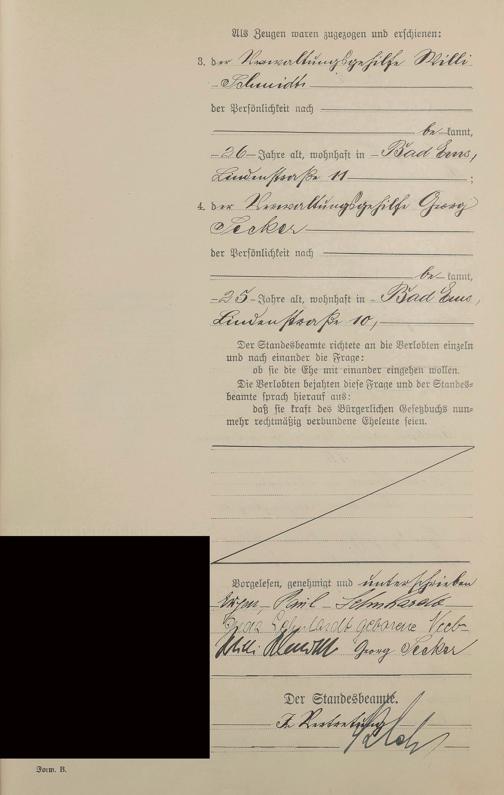 Als Zeugen waren zugezogen und erschienen:
3. der Verwaltungsgehilfe Willi
Schmidt
der Persönlichkeit nach
be kannt,
26 Jahre alt, wohnhaft in Bad Ems,
Lindenstraße 11 ;
4. der Verwaltungsgehilfe Georg
Secker
der Persönlichkeit nach
be kannt,
25 Jahre alt, wohnhaft in Bad Ems,
Lindenstraße 10,
Der Standesbeamte richtete an die Verlobten einzeln
und nach einander die Frage:
ob sie die Ehe mit einander eingehen wollen.
Die Verlobten bejahten diese Frage und der Standes-
beamte sprach hierauf aus:
daß sie kraft des Bürgerlichen Gesetzbuchs nun-
mehr rechtmäßig verbundene Eheleute seien.
Vorgelesen, genehmigt und unterschrieben
Paul
geborene
Willi Schmidt Georg Secker
Der Standesbeamte.
In Vertretung
Form. B.